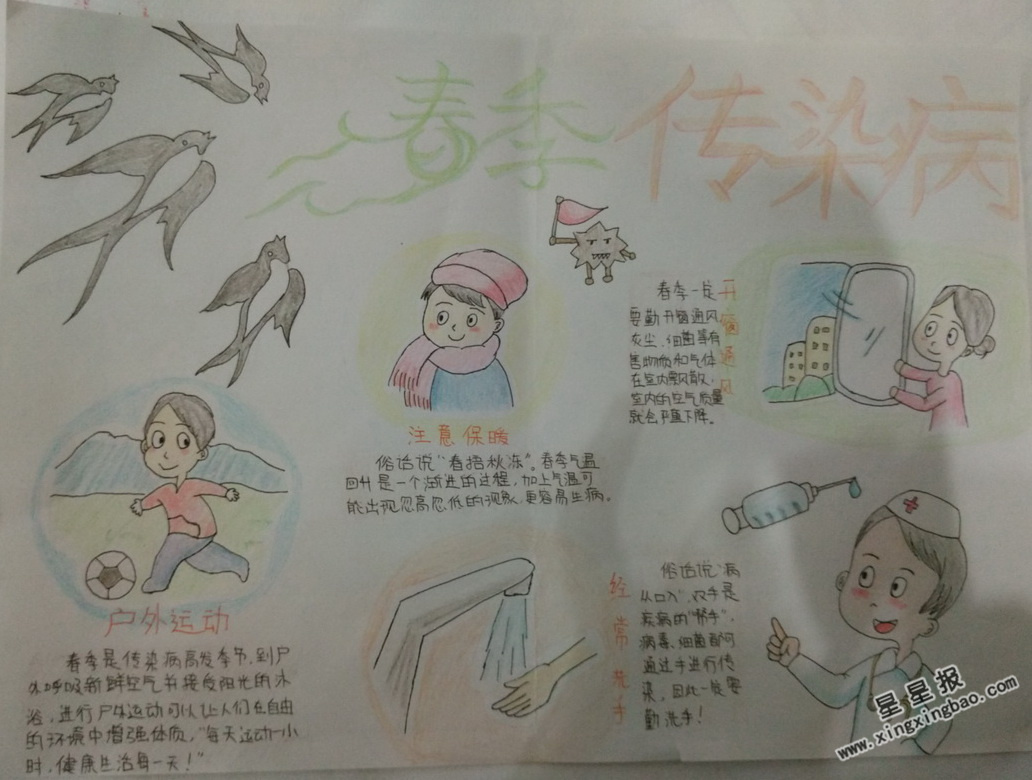 春季传染病
注意保暖
俗话说“春捂秋冻”。春季气温
回升是一个渐进的过程，加上气温可
能出现忽高忽低的现象，更容易生病。
开窗通风
春季一定
要勤开窗通风，
灰尘、细菌等有
害物质和气体
在室内飘散，
室内的空气质量
就会严重下降。
户外运动
春季是传染病高发季节，到户
外呼吸新鲜空气并接受阳光的沐
浴，进行户外运动可以让人们在自由
的环境中增强体质，“每天运动一小
时，健康生活每一天！”
经常洗手
俗话说“病
从口入”，双手是
疾病的“帮手”，
病毒、细菌都可
通过手进行传
染，因此一定要
勤洗手！
星星报
www.xingxingbao.com